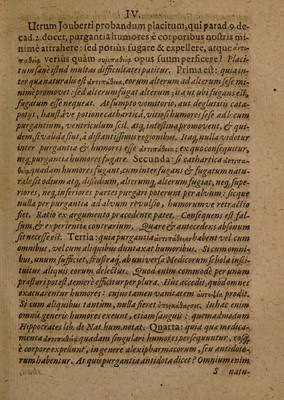 IV.
Utrum Jouberti probandum placitum, qui parad. 9. de-
cad. 2. docet, purgantia humores è corporibus nostris mi-
nimè attrahere: sed potius fugare & expellere, atque ἀντι-
παθείᾳ veriùs quàm συμπαθείᾳ opus suum perficere? Placi-
tum sanè istud multas difficultates patitur. Prima est: quia in-
ter qua naturalis est ἀντιπάθεια, eorum alterum ad alterum sese mi-
nimè promovet: sed alterum fugat alterum; ita ut ubi fugans est,
fugatum esse nequeat. At sumpto vomitorio, aut deglutitis cata-
potiis, haustáve potione cathartica, vitiosi humores sese ad locum
purgantium, ventriculum scil. atq; intestina promovent, & qui-
dem, si valida sint, à distantissimis regionibus. Itaq; nulla videtur
inter purgantia & humores esse ἀντιπάθεια: ex quo consequitur,
neq; purgantia humores fugare. Secunda: si cathartica ἀντιπα-
θείᾳ quadam humores fugant, cum inter fugans & fugatum natu-
rale sit odium atq; dissidium, alterumq; alterum fugiat, neq; supe-
riores, neq; inferiores partes purgari poterunt per alvum: sicque
nulla per purgantia ad alvum revulsio, humorumve retractio
fiet. Ratio ex argumento præcedente patet. Consequens est fal-
sum, & experientia contrarium. Quare & antecedens absonum
sit necesse est. Tertia: quia purgantia ἀντιπάθειαν habent vel cum
omnibus, vel cum aliquibus duntaxat humoribus. Si cum omni-
bus, unum sufficiet, frustraq; ab universa Medicorum schola insti-
tuitur aliquis eorum delectus. Quod enim commodè per unum
præstari potest, temerè efficitur per plura. Huc accedit, quòd omnes
exacuarentur humores: cujus tamen vanitatem αὐτοψία prodit.
Si cum aliquibus tantùm, nulla fieret ὑπερκάθαρσις. Inhac enim
omnis generis humores exeunt, etiam sanguis: quemadmodum
Hippocrates lib. de Nat. hum. notat. Quarta: quia qua medica-
menta ἀντιπαθείᾳ quadam singulari humores persequuntur, eosq;
è corpore expellunt, in genere alexipharmacorum, seu antidoto-
rum habentur. At quis purgantia antidota dicet? Omnium enim
S natu-